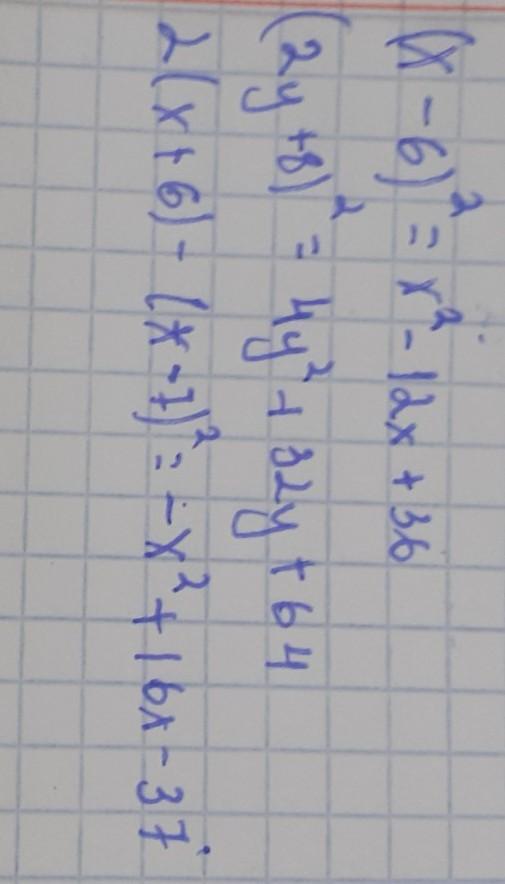 (x - 6)² = x² - 12x + 36
(2y + 8)² = 4y² + 32y + 64
2(x + 6) - (x - 7)² = -x² + 16x - 37